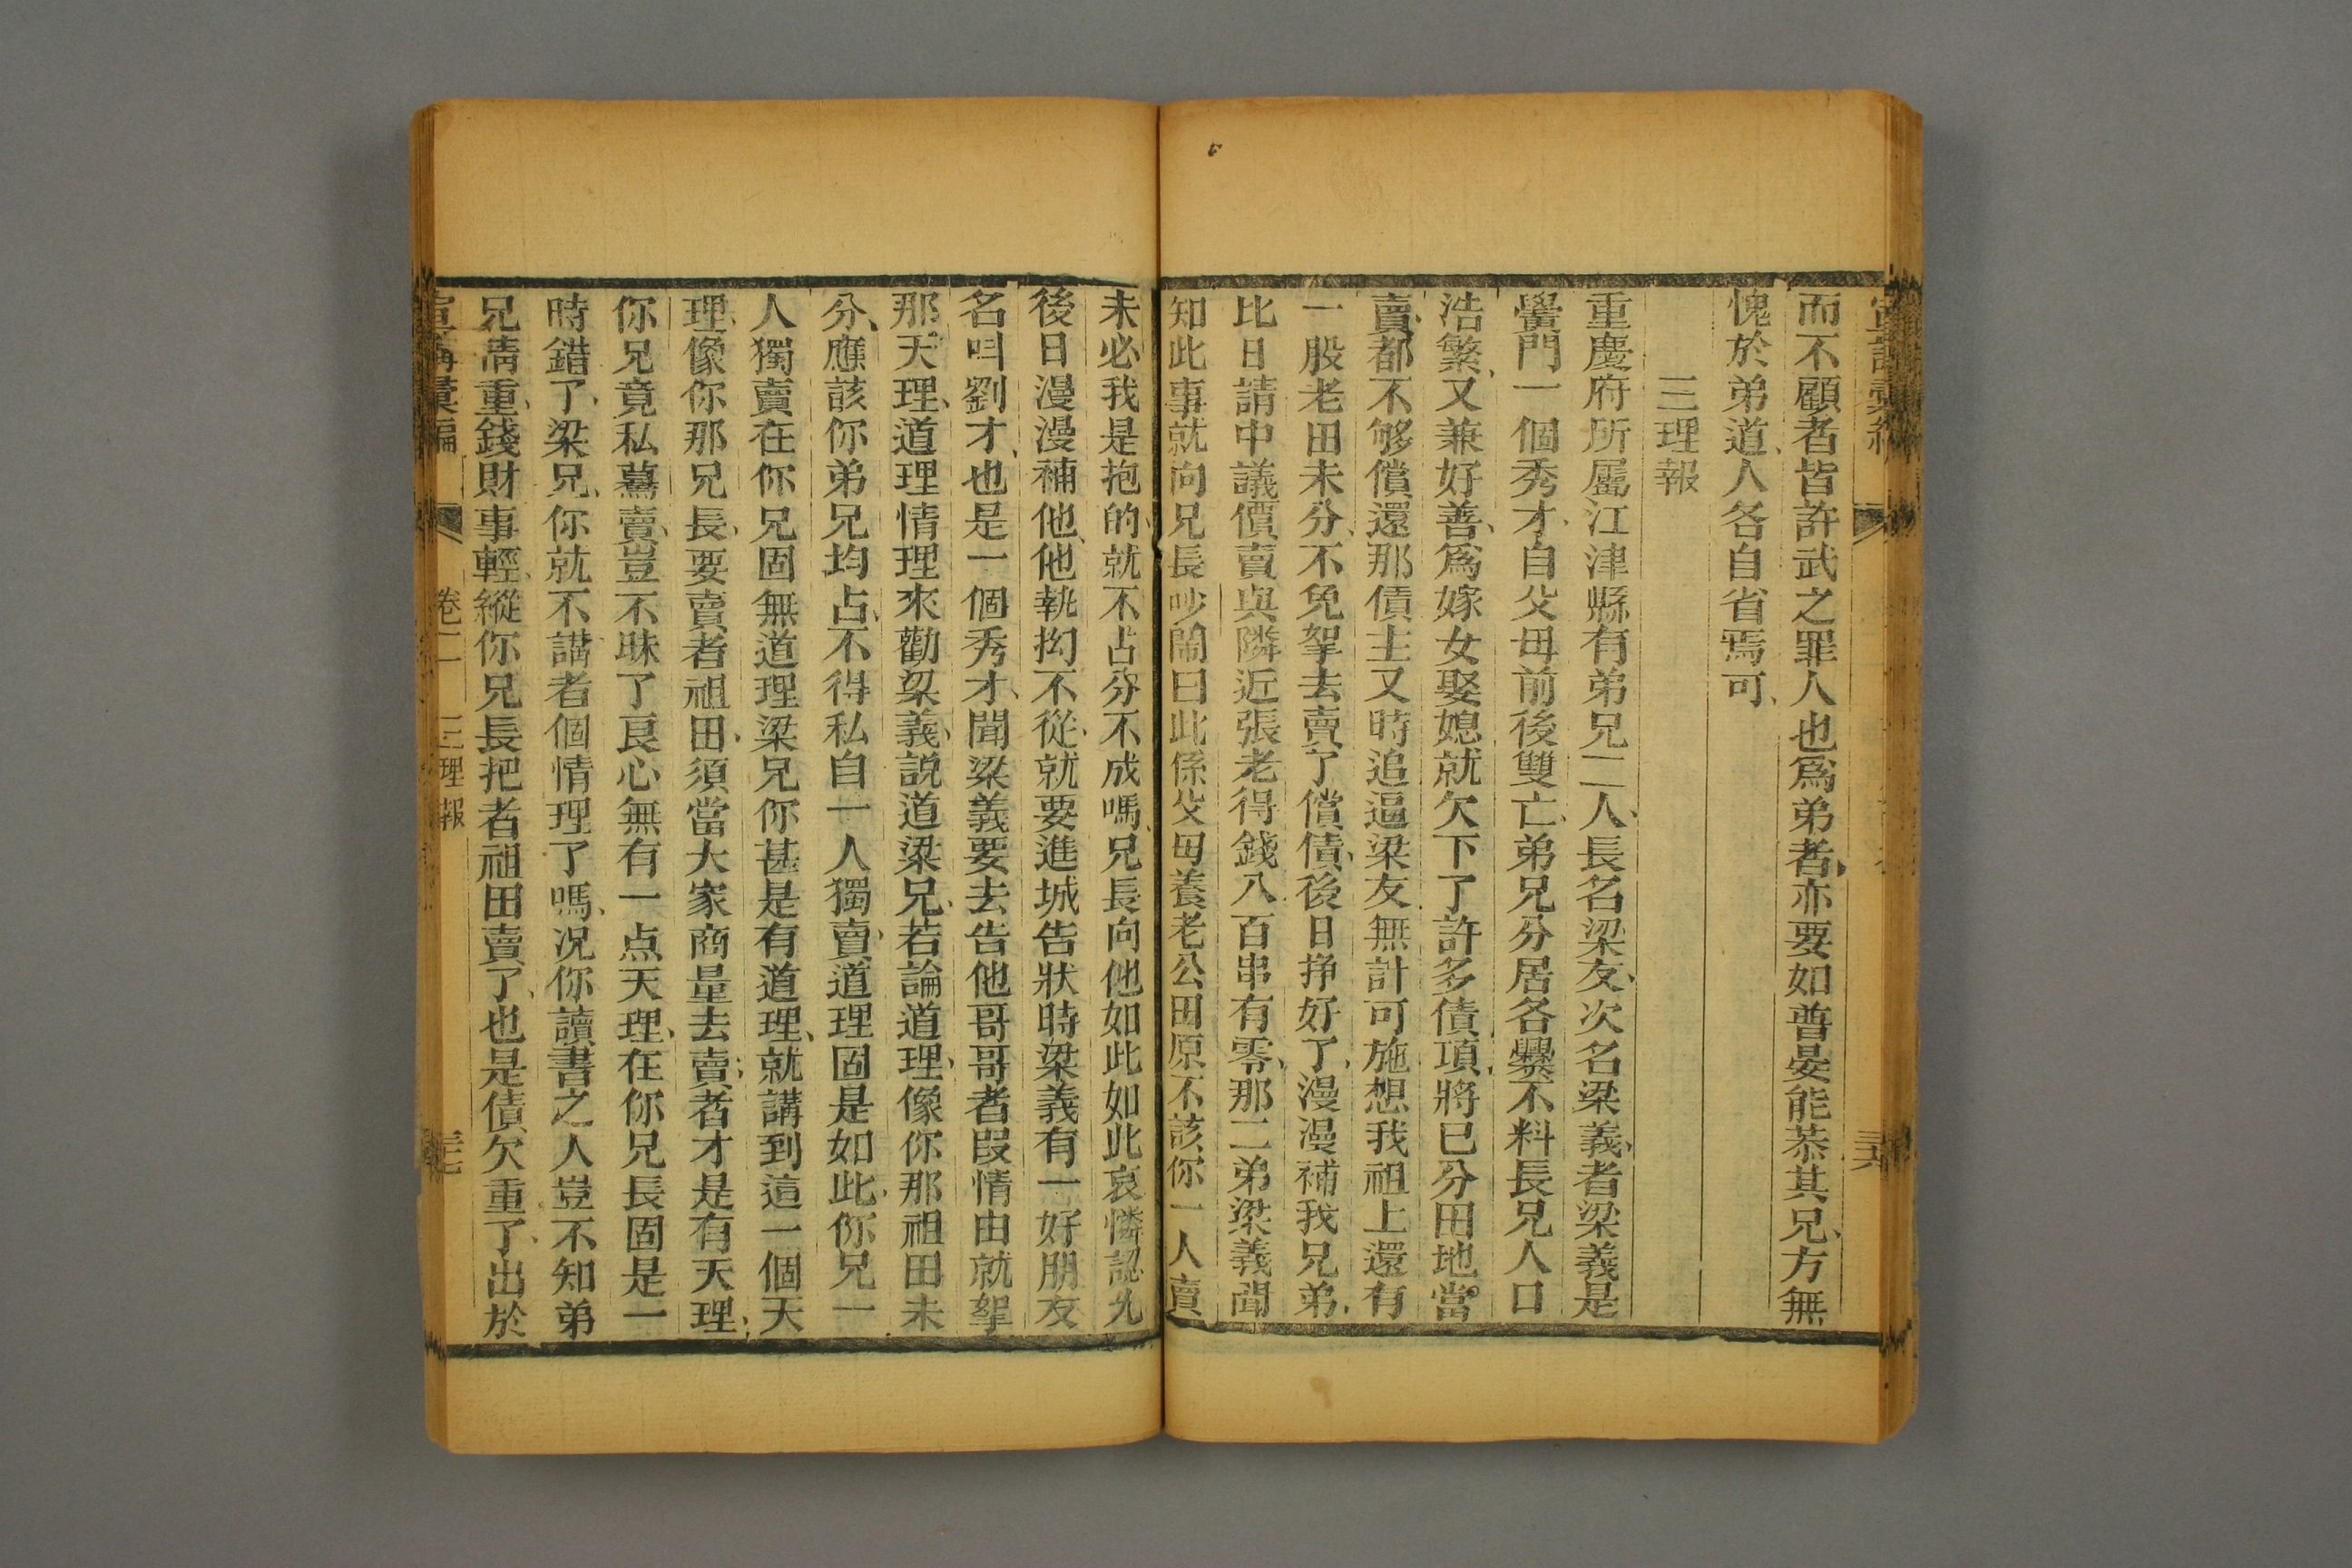 而不顧者皆許武之罪人也爲弟者亦要如普晏能恭其兄方無
愧於弟道人各自省焉可
三理報
重慶府所屬江津縣有弟兄二人長名梁友次名梁義者梁義是
黌門一個秀才自父母前後雙亡弟兄分居各爨不料長兄人口
浩繁又兼好善爲嫁女娶媳就欠下了許多債項將已分田地當
賣都不够償還那債主又時追逼梁友無計可施想我祖上還有
一股老田未分不免拏去賣了償債後日掙好了漫漫補我兄弟
比日請中議價賣與隣近張老得錢八百串有零那二弟梁義聞
知此事就向兄長吵鬧曰此係父母養老公田原不該你一人賣
未必我是抱的就不占分不成嗎兄長向他如此如此哀憐認允
後日漫漫補他他執拗不從就要進城告狀時梁義有一好朋友
名呌劉才也是一個秀才聞梁義要去告他哥哥者叚情由就拏
那天理道理情理來勸梁義説道梁兄若論道理像你那祖田未
分應該你弟兄均占不得私自一人獨賣道理固是如此你兄一
人獨賣在你兄固無道理梁兄你甚是有道理就講到這一個天
理像你那兄長要賣者祖田須當大家商量去賣者才是有天理
你兄竟私驀賣豈不昧了良心無有一点天理在你兄長固是一
時錯了梁兄你就不講者個情理了嗎况你讀書之人豈不知弟
兄淸重錢財事輕縱你兄長把者祖田賣了也是債欠重了出於
宣講彙編 卷二 三理報 三七